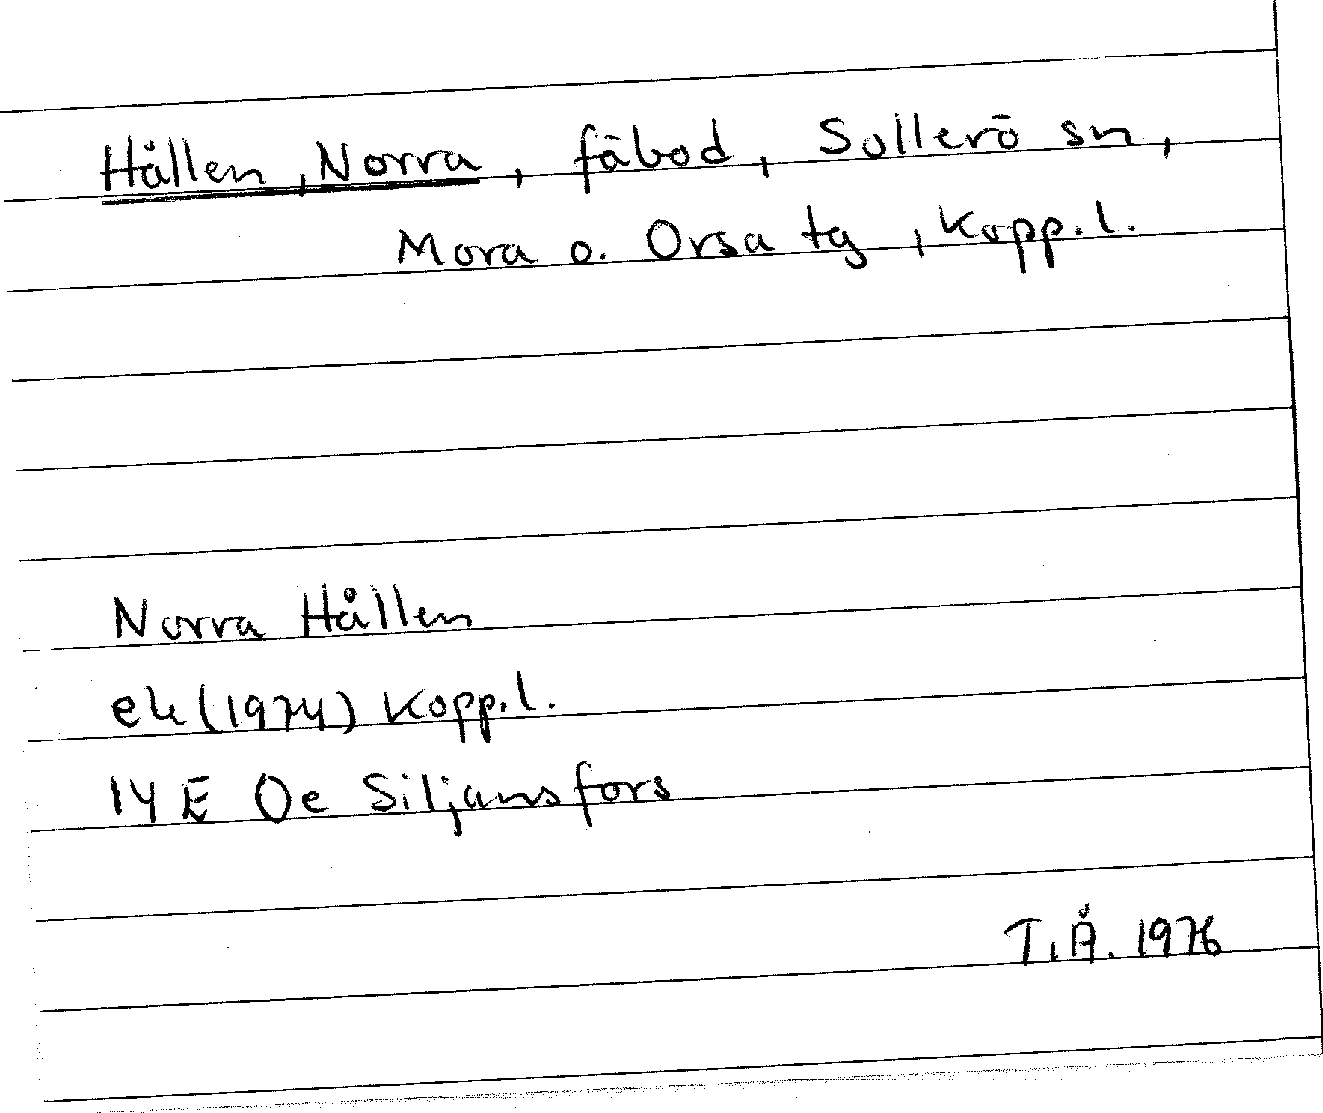 Hållen, Norra, fäbod, Sollerö sn,
Mora o. Orsa tg, Kopp.l.
Norra Hållen
ek (1974) Kopp.l.
14 E 0e Siljansfors
T.Å. 1976